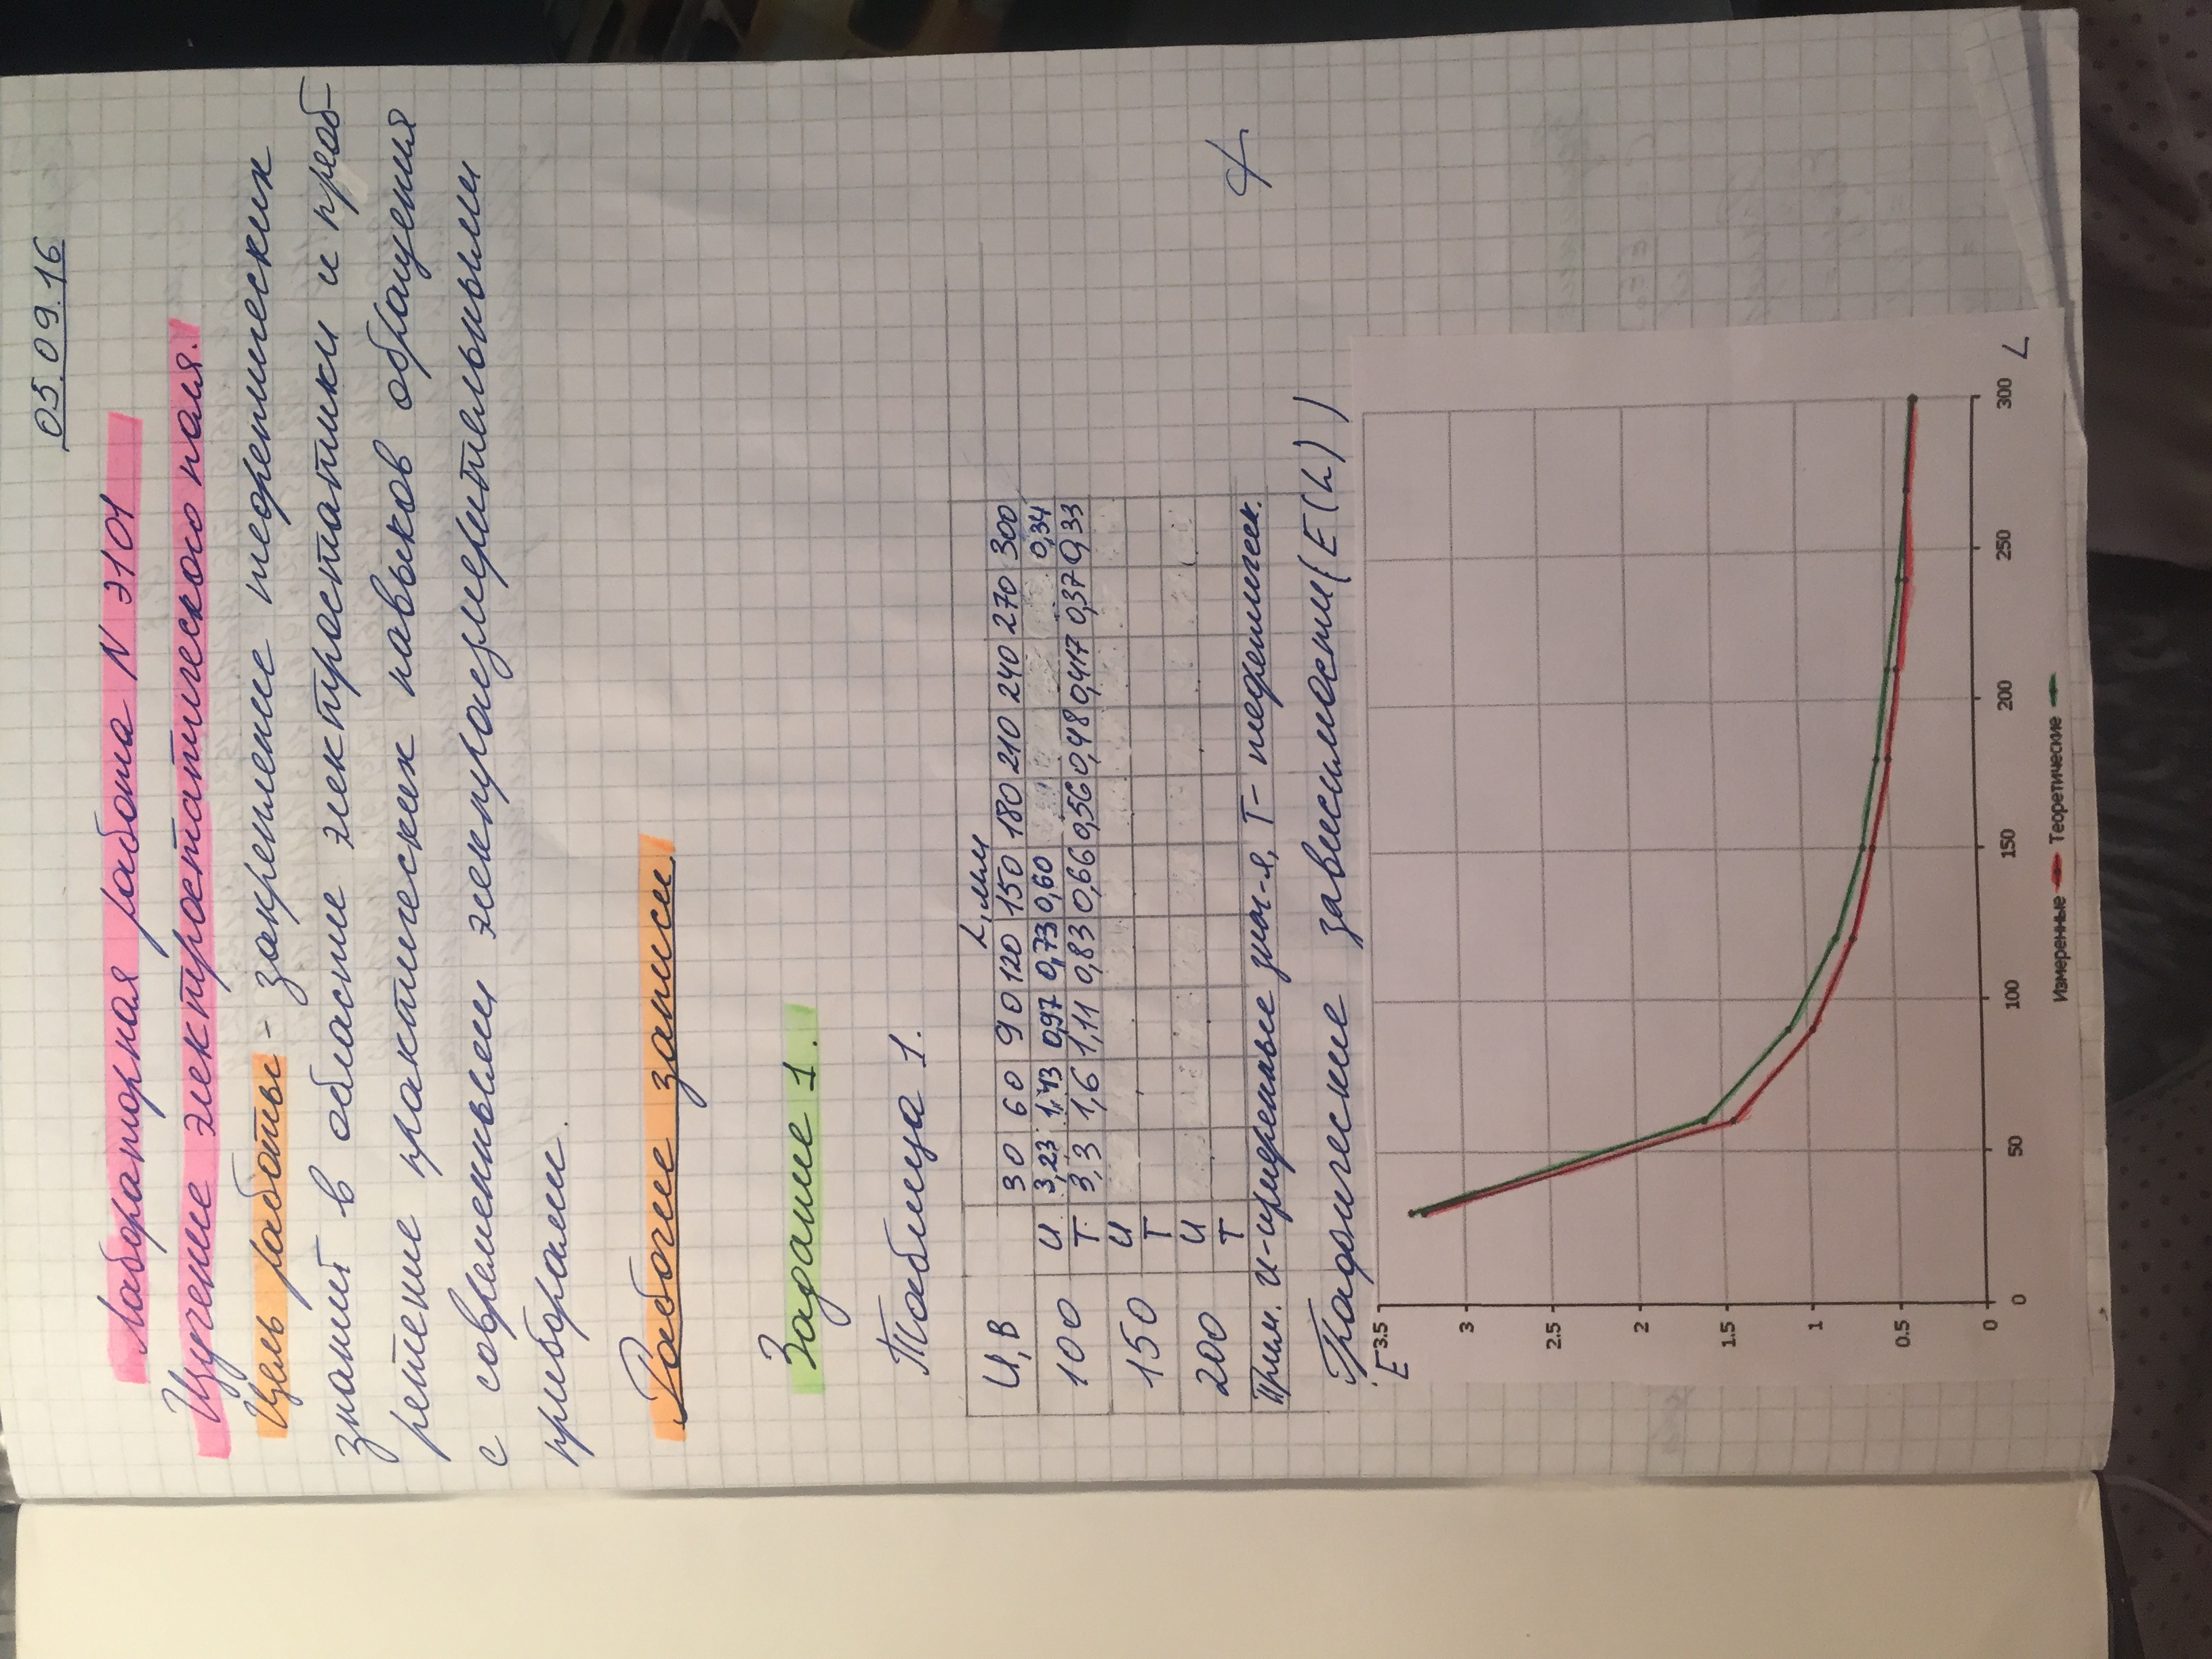 05.09.16
Лабораторная работа N Э101
Изучение электростатического поля.
Цель работы - закрепление теоретических
знаний в области электростатики и преоб-
ретение практических навыков обращения
с современными электроизмерительными
приборами.
Рабочие записи.
Задание 1.
Таблица 1.
L, мм
U, В 30 60 90 120 150 180 210 240 270 300
100 И 3,23 1,43 0,97 0,73 0,60 0,34
Т 3,3 1,6 1,11 0,83 0,66 0,56 0,48 0,417 0,37 0,33
150 И
Т
200 И
Т
Прим. И-измеренные знач-я, Т- теоретическ.
Графические зависимости (E(L))
E 3.5
3
2.5
2
1.5
1
0.5
0
0 50 100 150 200 250 300 L
Измеренные Теоретические